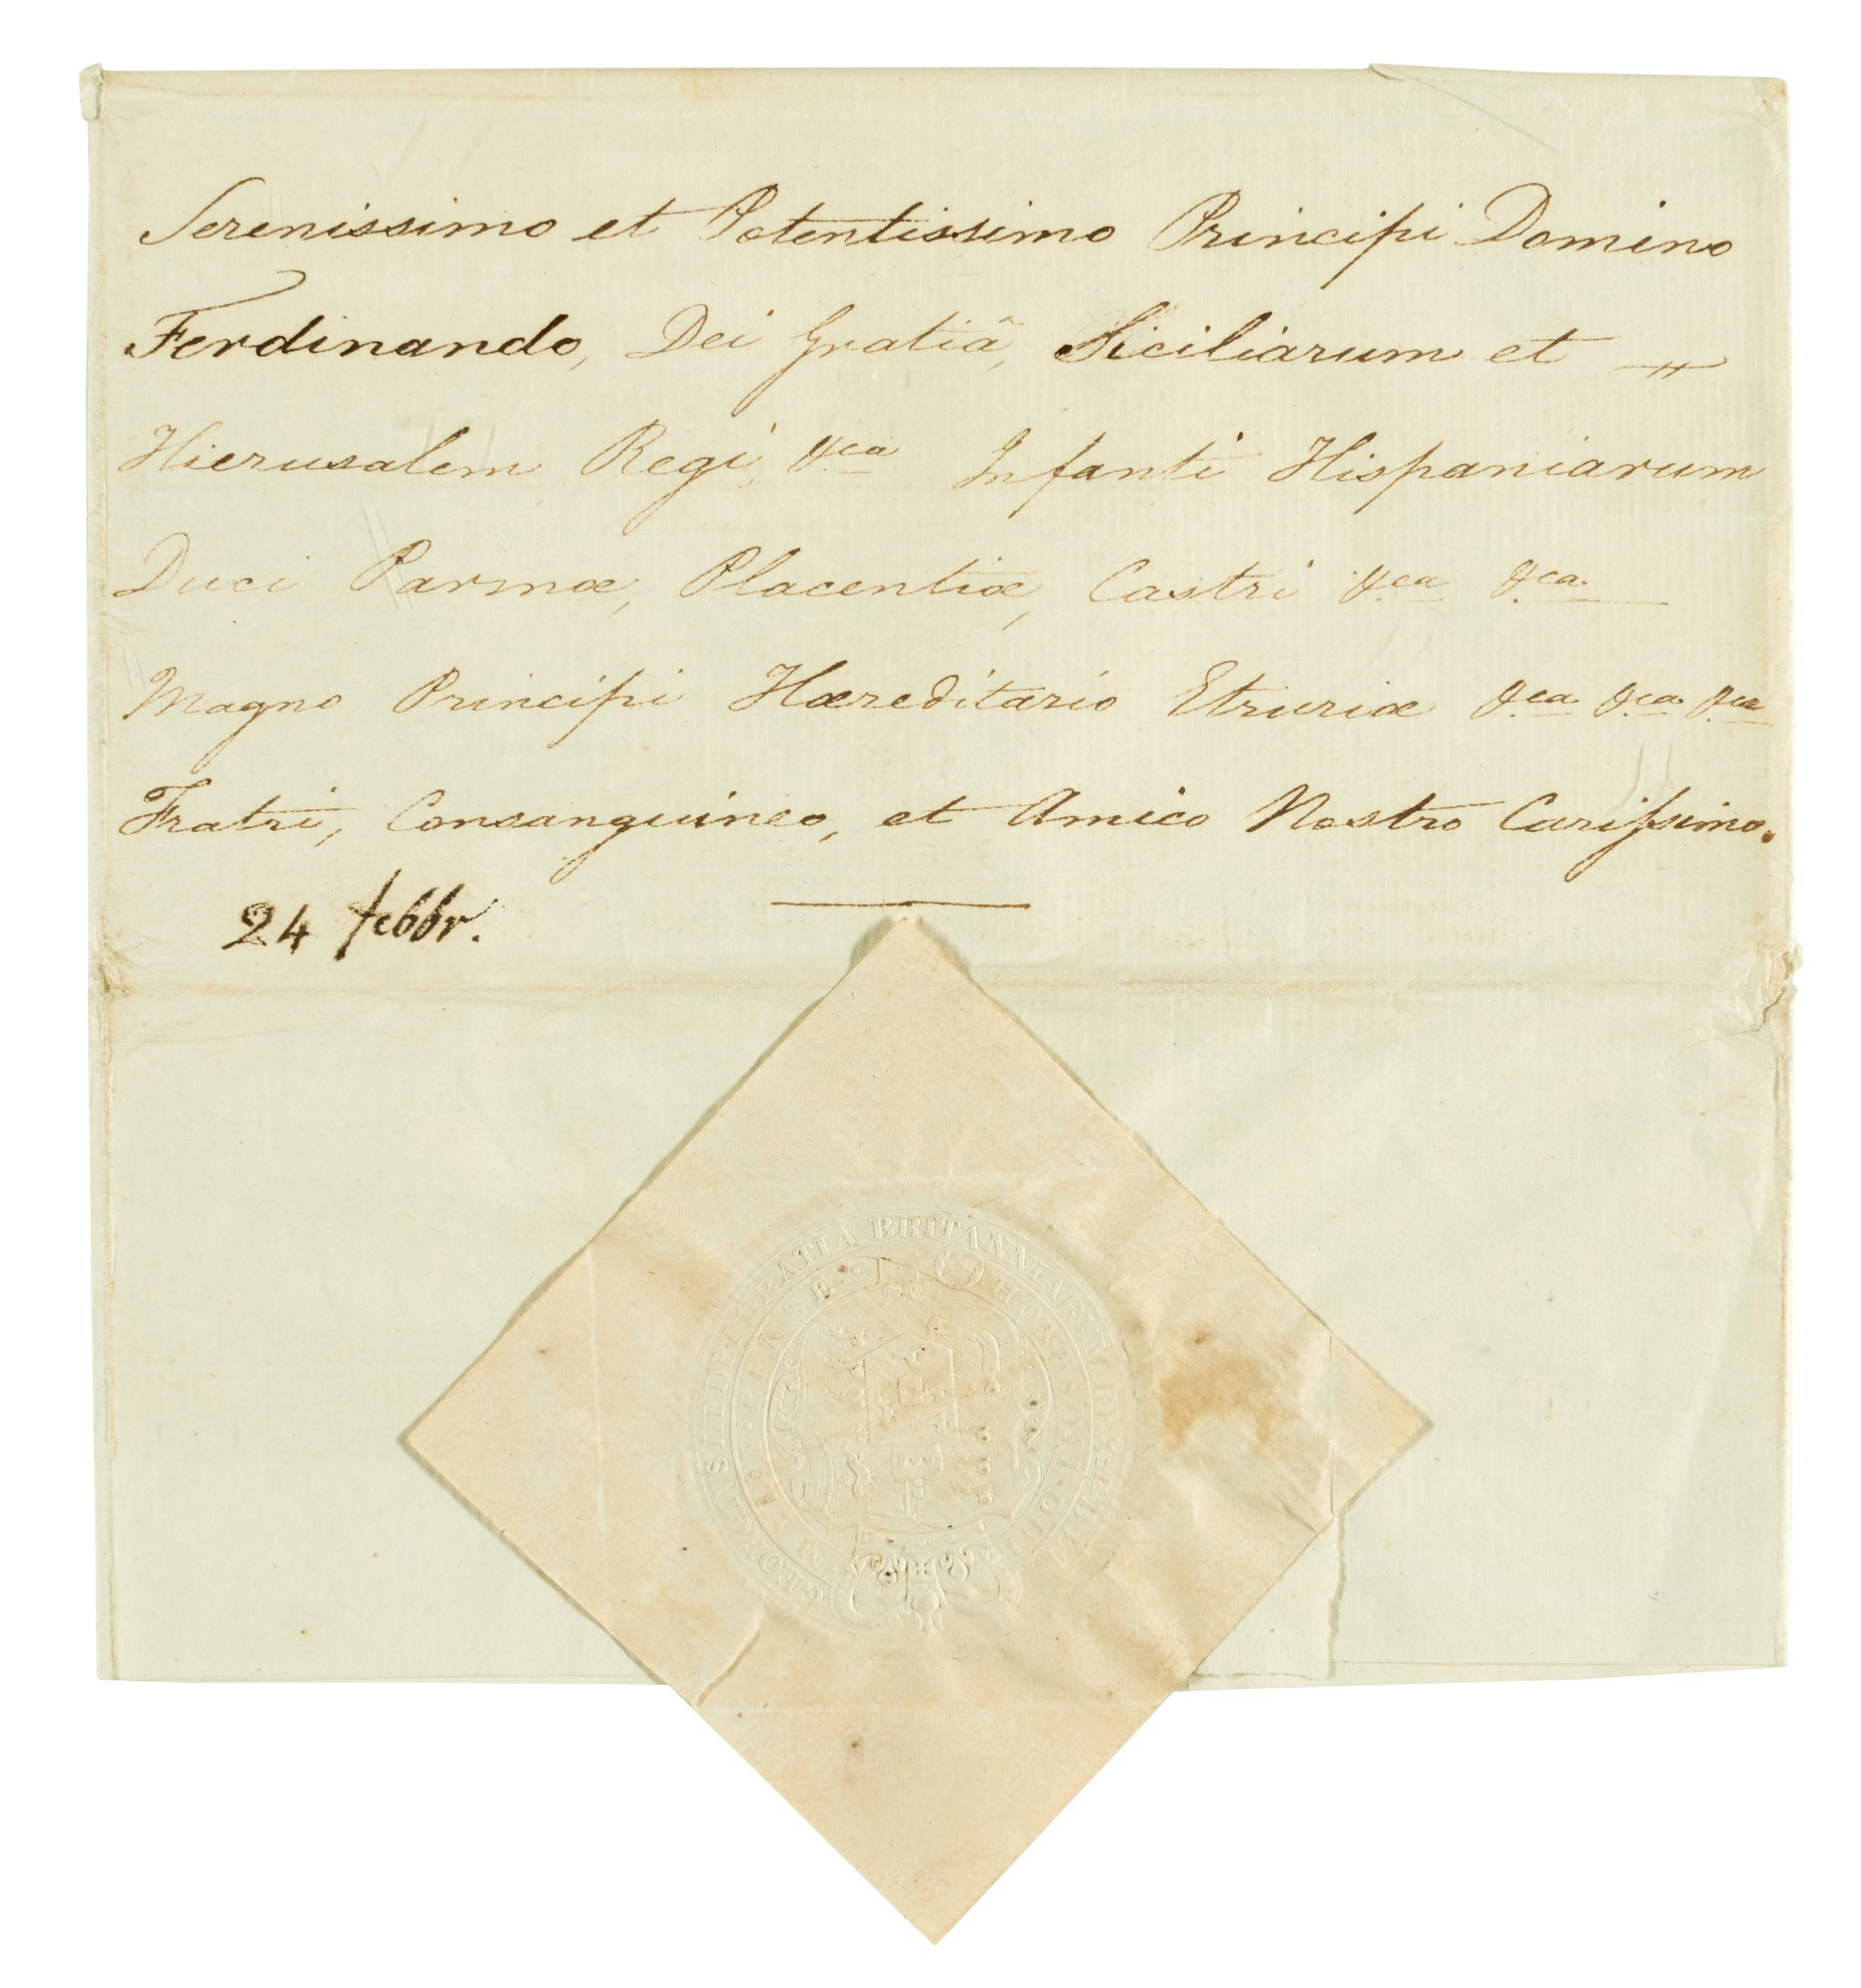 Serenissimo et Potentissimo Principi Domino
Ferdinando, Dei Gratiâ, Siciliarum et
Hierusalem Regi, &ca Infanti Hispaniarum
Duci Parmæ, Placentiæ, Castri &ca &ca
Magno Principi Hæreditario Etruriæ &ca &ca &ca
Fratri, Consanguineo, et Amico Nostro Cariſsimo.
24 febbr.
GRATIA BRITANNIARUM
HONI SOIT QUI MAL Y PENSE